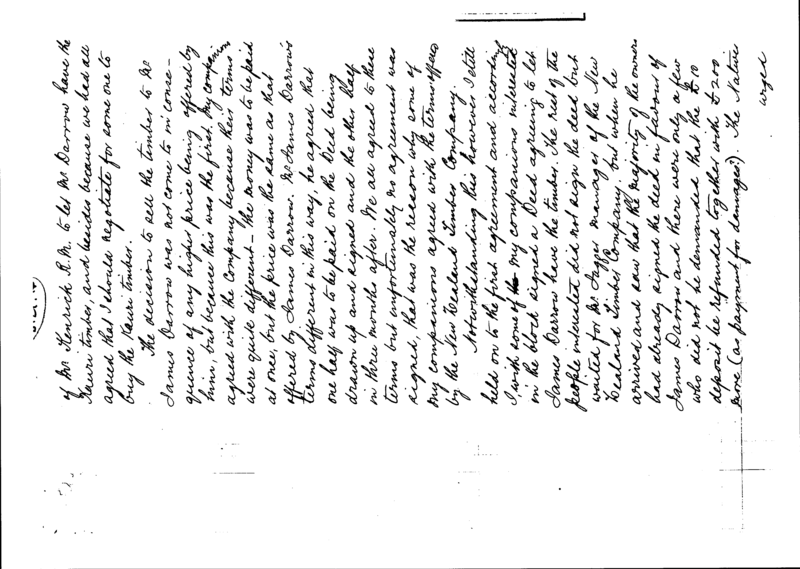 of Mr Kenrick R.M. to let Mr Darrow have the
Kauri timber, and besides because we had all
agreed that I should negotiate for some one to
buy the Kauri timber.
The decision to sell the timber to Mr
James Darrow was not come to in conse-
quence of any higher price being offered by
him, but because this was the first. My companions
agreed with the Company because their terms
were quite different - the money was to be paid
at once, but the price was the same as that
offered by James Darrow. Mr James Darrow's
terms different in this way, he agreed that
one half was to be paid on the Deed being
drawn up and signed and the other half
in three months after. We all agreed to these
terms but unfortunately no agreement was
signed, that was the reason why some of
my companions agreed with the terms offered
by the New Zealand Timber Company.
Notwithstanding this however I still
held on to the first agreement and accordingly
I with some of my companions interested
in the block signed a Deed agreeing to let
James Darrow have the timber. The rest of the
people interested did not sign the deed but
waited for Mr Jagger manager of the New
Zealand Timber Company, but when he
arrived and saw that the majority of the owners
had already signed the deed in favour of
James Darrow and there were only a few
who did not he demanded that the £10
deposit be refunded together with £200
more (as payment for damages). The Natives
urged